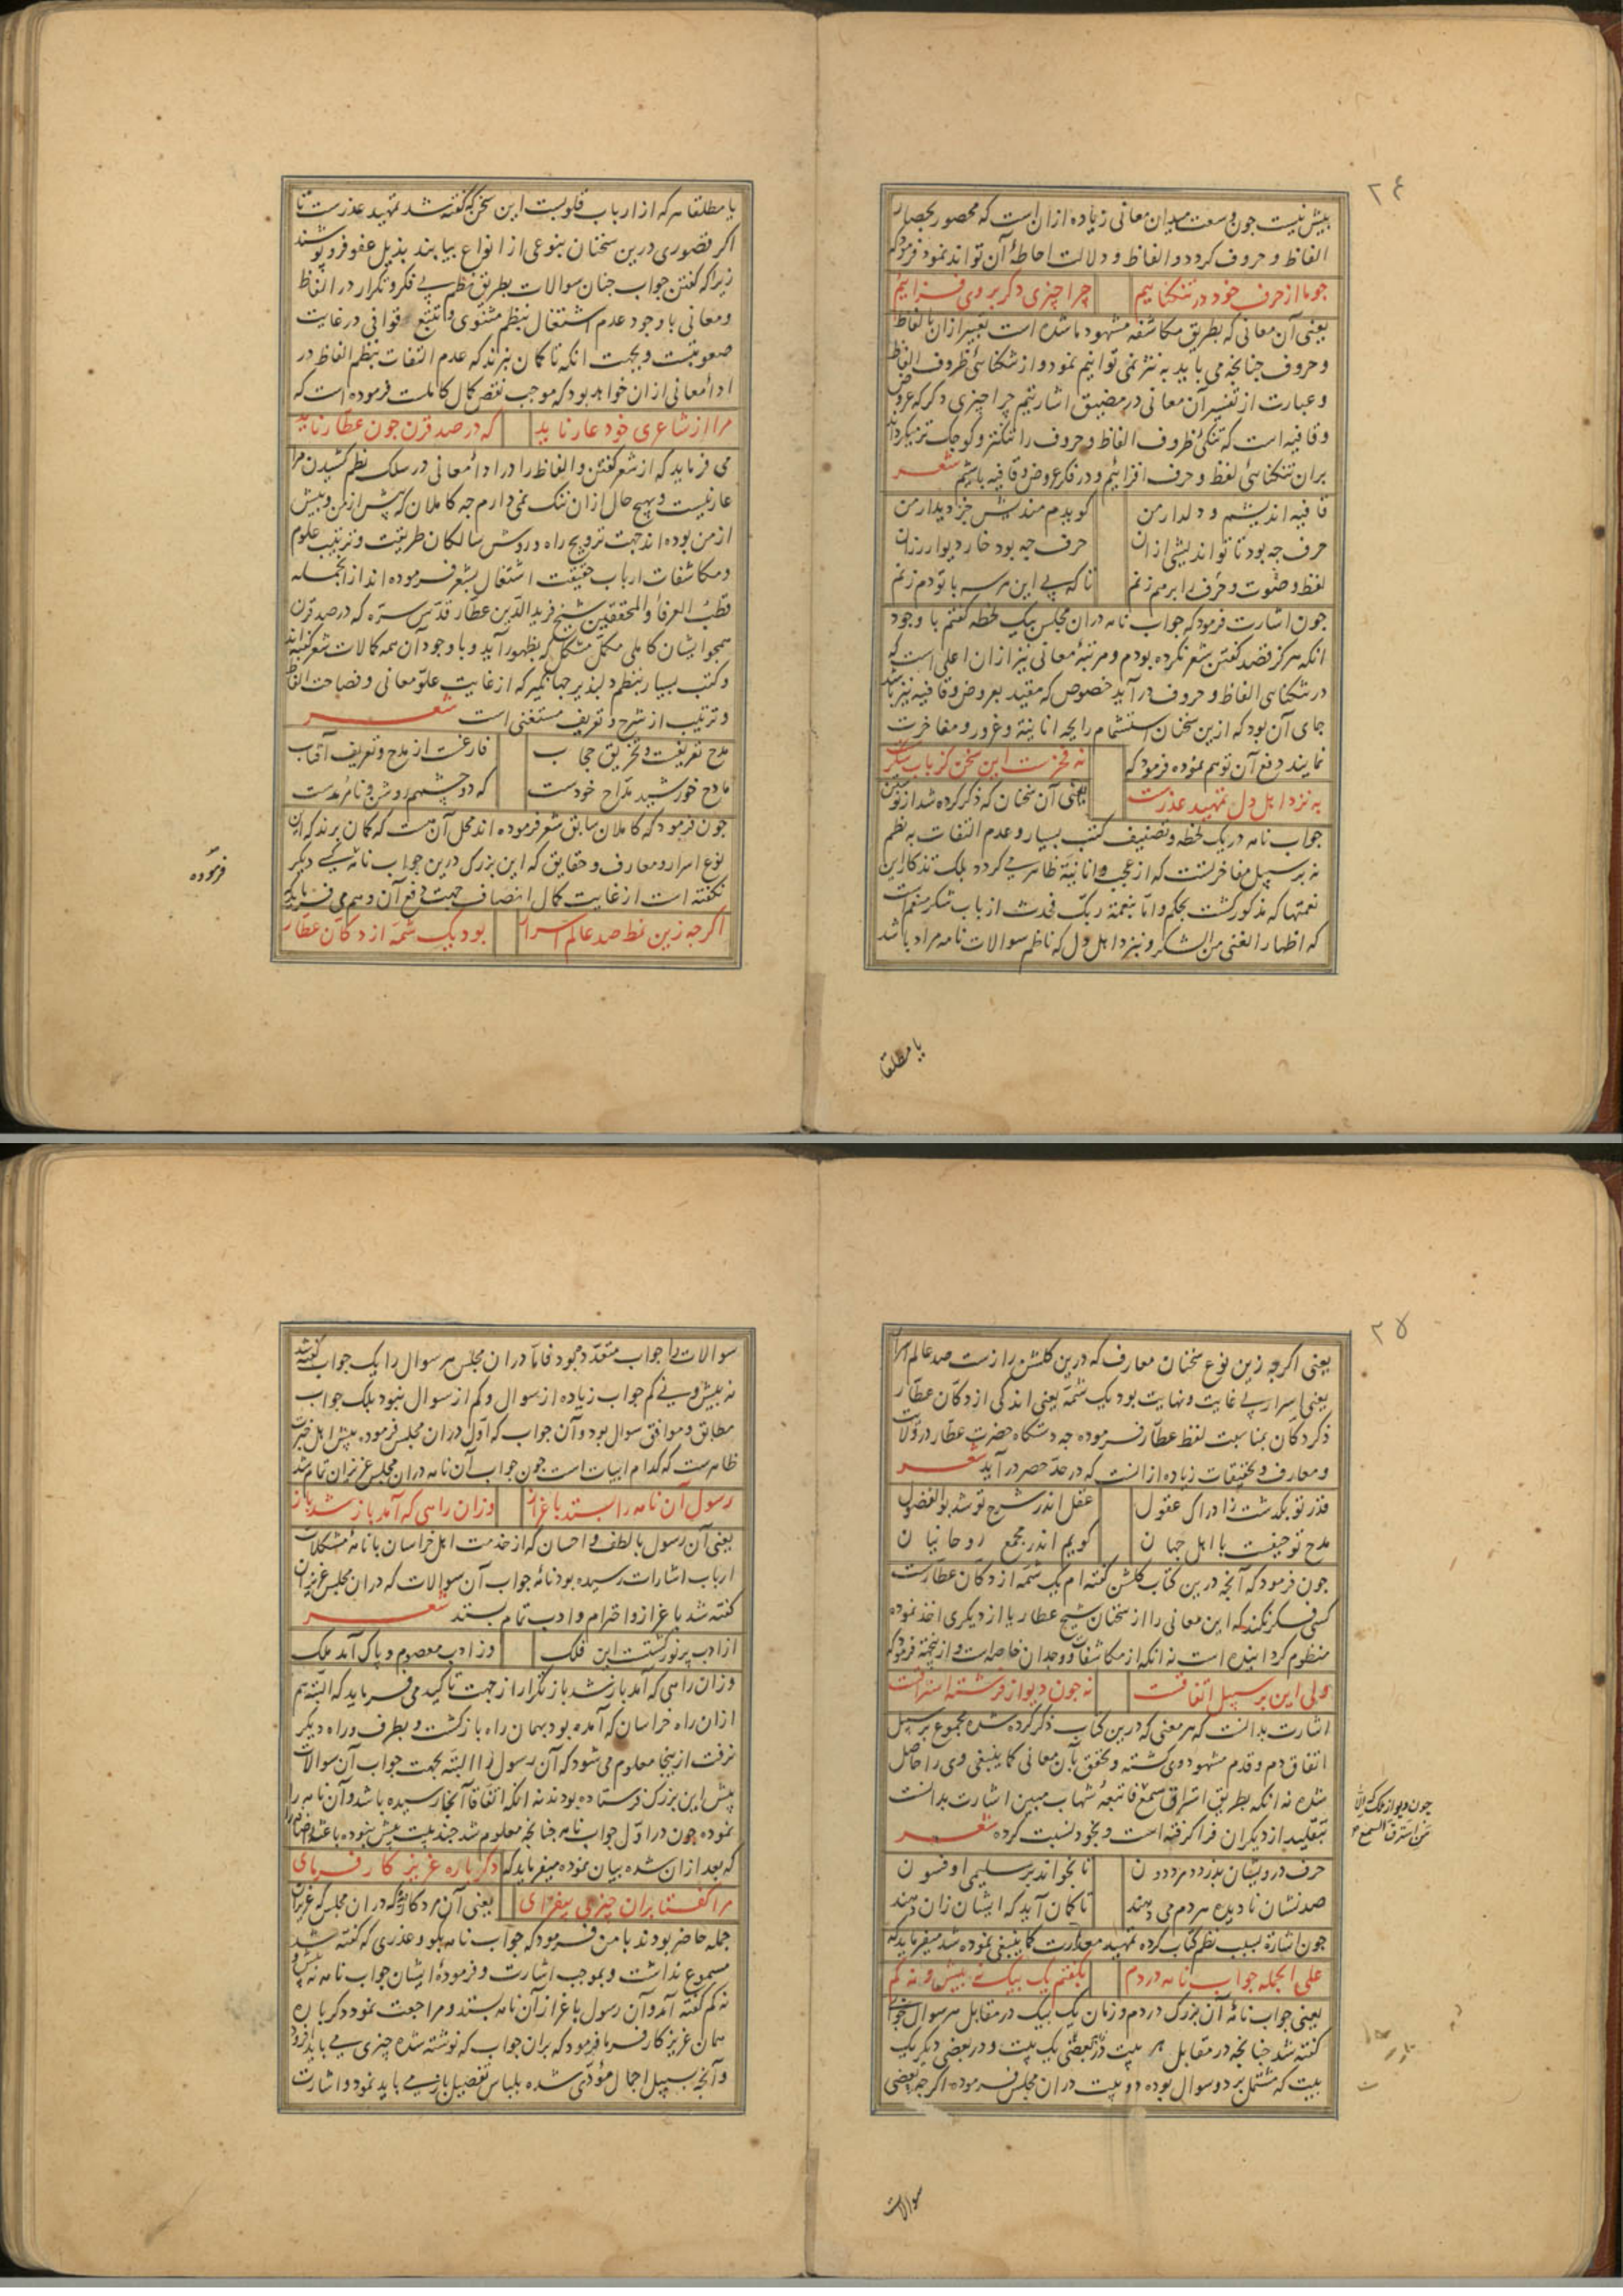 ٢٤
بیش نیست جون وسعت میدان معانی زیاده ازان است که محصور بحصار
الفاظ و حروف کردد و الفاظ و دلالت احاطهٔ آن تواند نمود فرمود که
جو ما از حرف خود در تنکناییم چرا چیزی دکر بر وی فزاییم
یعنی آن معانی که بطریق مکاشفه مشهود ما شده است تعبیر ازان بالفاظ
و حروف جنانجه می باید به نثر نمی توانیم نمود و از تنکنائی ظروف الفاظ
و عبارت از تفسیر آن معانی در مضیق اشارتیم چرا چیزی دکر که عروض
و قافیه است که تنکئی ظروف الفاظ و حروف را تنکتر و کوجک تر میکرداند
بران تنکنائی لفظ و حرف افزائیم و در فکر عروض و قافیه باشیم شعر
قافیه اندیشم و دلدار من کویدم مندیش جز دیدار من
حرف جه بود تا تو اندیشی ازان حرف جه بود خار دیوار رزان
لفظ و صوت و حرف را برهم زنم تا که بی این هر سه با تو دم زنم
جون اشارت فرمود که جواب نامه دران مجلس بیک لحظه کفتم با وجود
انکه هرکز قصد کفتن شعر نکرده بودم و مرتبهٔ معانی نیز ازان اعلی است که
در تنکنای الفاظ و حروف در آید خصوص که مقید بعروض و قافیه نیز باشد
جای آن بود که ازین سخنان استشمام رایحه انانیة و غرور و مفاخرت
نمایند دفع آن توهم نموده فرمود که نه فخرست این سخن کز باب شکرست
به نزد اهل دل تمهید عذرست یعنی آن سخنان که ذکر کرده شد از نوشتن
جواب نامه در یک لحظه و تصنیف کتب بسیار و عدم التفات به نظم
نه بر سبیل مفاخرتست که از عجب و انانیة ظاهر می کردد بلک تذکار این
نعمتها که مذکور کشت بحکم و اما بنعمة ربک فحدث از باب شکر منعم است
که اظهار الغنی من الشکر و نیز نزد اهل دل که ناظم سوالات نامه مراد باشد
یا مطلقا
یا مطلقا هر که از ارباب قلوبست این سخن که کفته شد تمهید عذرست تا
اکر قصوری درین سخنان بنوعی از انواع بیابند بذیل عفو فرو پوشند
زیرا که کفتن جواب جنان سوالات بطریق نظم بی فکر و تکرار در الفاظ
و معانی با وجود عدم اشتغال بنظم مثنوی و تتبع قوافی در غایت
صعوبتست و بجهت انکه تا کمان نبرند که عدم التفات بنظم الفاظ در
اداء معانی ازان خواهد بود که موجب نقص کمال کاملست فرموده است که
مرا از شاعری خود عار ناید که در صد قرن جون عطار ناید
می فرماید که از شعر کفتن و الفاظ را در اداء معانی در سلک نظم کشیدن مرا
عار نیست و بهیج حال ازان ننک نمی دارم جه کاملان که پیش از من و بیش
از من بوده اند جهت ترویج راه و روش سالکان طریقت و ترتیب علوم
و مکاشفات ارباب حقیقت اشتغال بشعر فرموده اند از انجمله
قطب العرفاء و المحققین شیخ فرید الدین عطار قدس سره که در صد قرن
همجو ایشان کاملی مکمل مشکل که بظهور آید و با وجود آن همه کمالات شعر کفته اند
و کتب بسیار بنظم دلپذیر جهانکیر که از غایت علو معانی و فصاحت الفاظ
و ترتیب از شرح و تعریف مستغنی است شعر
مدح تعریفست و تخریق حجاب فارغست از مدح و تعریف آفتاب
مادح خورشید مداح خودست که دو چشمم روشن و نامرمدست
جون فرمود که کاملان سابق شعر فرموده اند محل آن هست که کمان برند که این
نوع اسرار و معارف و حقایق که این بزرک درین جواب نامه کسی دیکر
نکفته است از غایت کمال انصاف جهت دفع آن وهم می فرماید که
اکرجه زین نمط صد عالم اسرار بود یک شمه از دکان عطار
فرموده
٢٥
یعنی اکرجه زین نوع سخنان معارف که درین کلشن رازست صد عالم اسرار
یعنی اسرار بی غایت و نهایت بود یک شمه یعنی اندکی از دکان عطار
ذکر دکان بمناسبت لفظ عطار فرموده جه دستکاه حضرت عطار در ولایت
و معارف و تحقیقات زیاده ازانست که در حد حصر در آید شعر
قدر تو بکذشت از ادراک عقول عقل اندر شرح تو شد بوالفضول
مدح تو حیفست با اهل جهان کویم اندر مجمع روحانیان
جون فرمود که آنجه درین کتاب کلشن کفته ام یک شمه از دکان عطارست
کسی فکر نکند که این معانی را از سخنان شیخ عطار یا از دیکری اخذ نموده
منظوم کردانیده است نه انکه از مکاشفات و وجدان خاصه است و ازینجهة فرمود که
ولی این بر سبیل اتفاقست نه جون دیو از فرشته استراقست
اشارت بدانست که هر معنی که درین کتاب ذکر کرده شده مجموع بر سبیل
اتفاق دم و قدم مشهود وی کشته و تحقق بآن معانی کما ینبغی وی را حاصل
شده نه انکه بطریق استراق سمع فاتبعه شهاب مبین اشارت بدانست
بتقلید از دیکران فرا کرفته است و بخود نسبت کرده شعر
حرف درویشان بدزدد مرد دون تا بخواند بر سلیمی او فسون
صد نشان نادیده هر دم می دهند تا کمان آید که ایشان زان دهند
جون اشارة بسبب نظم کتاب کرده تمهید معذرت کما ینبغی نموده شد میفرماید که
علی الجمله جواب نامه در دم بکفتم یک بیک نه بیش و نه کم
یعنی جواب نامهٔ آن بزرک در دم و زمان یک بیک در مقابل هر سوال جوابی
کفته شد جنانجه در مقابل هر بیت در بعضی یک بیت و در بعضی دیکر یک
بیت که مشتمل بر دو سوال بوده دو بیت دران مجلس فرموده اکرجه بعضی
جون دیو از ملک
من استرق السمع
سوالات
سوالات را جواب متعدد بود فاما دران مجلس هر سوال را یک جواب کفته شد
نه بیش و نی کم جواب زیاده از سوال و کم از سوال نبود بلک جواب
مطابق و موافق سوال بود و آن جواب که اول دران مجلس فرمود پیش اهل خبرت
ظاهرست که کدام ابیات است جون جواب آن نامه دران مجلس عزیزان تمام شد
رسول آن نامه را بستد باعزاز وزان راهی که آمد باز شد باز
یعنی آن رسول با لطف و احسان که از خدمت اهل خراسان با نامهٔ مشکلات
ارباب اشارات رسیده بود نامهٔ جواب آن سوالات که دران مجلس عزیزان
کفته شد باعزاز و احترام و ادب تمام بستد شعر
از ادب پرنور کشتست این فلک وز ادب معصوم و پاک آمد ملک
وزان راهی که آمد باز شد باز تکرار از جهت تاکید می فرماید که البته هم
ازان راه خراسان که آمده بود بهمان راه باز کشت و بطرف و راه دیکر
نرفت ازینجا معلوم می شود که آن رسول را البته بجهت جواب آن سوالات
پیش این بزرک فرستاده بودند نه انکه اتفاقا آنجا رسیده باشد و آن نامه را
نموده جون در اول جواب نامه جنانجه معلوم شد جند بیت بیش نبوده باعث
که بعد ازان شده بیان نموده میفرماید که دکرباره عزیز کار فرمای
مرا کفتا بران چیزی بیفزای یعنی آن مرد کار که دران مجلس که عزیزان
جمله حاضر بودند با من فرمود که جواب نامه بکو و عذری که کفته شد
مسموع نداشت و بموجب اشارت و فرمودهٔ ایشان جواب نامه نه بیش و
نه کم کفته آمد و آن رسول باعزاز آن نامه بستد و مراجعت نمود دکرباره
همان عزیز کارفرما فرمود که بران جواب که نوشته شده چیزی می باید افزود
و آنجه بسبیل اجمال مؤدی شده بلباس تفصیل باز می باید نمود و اشارت